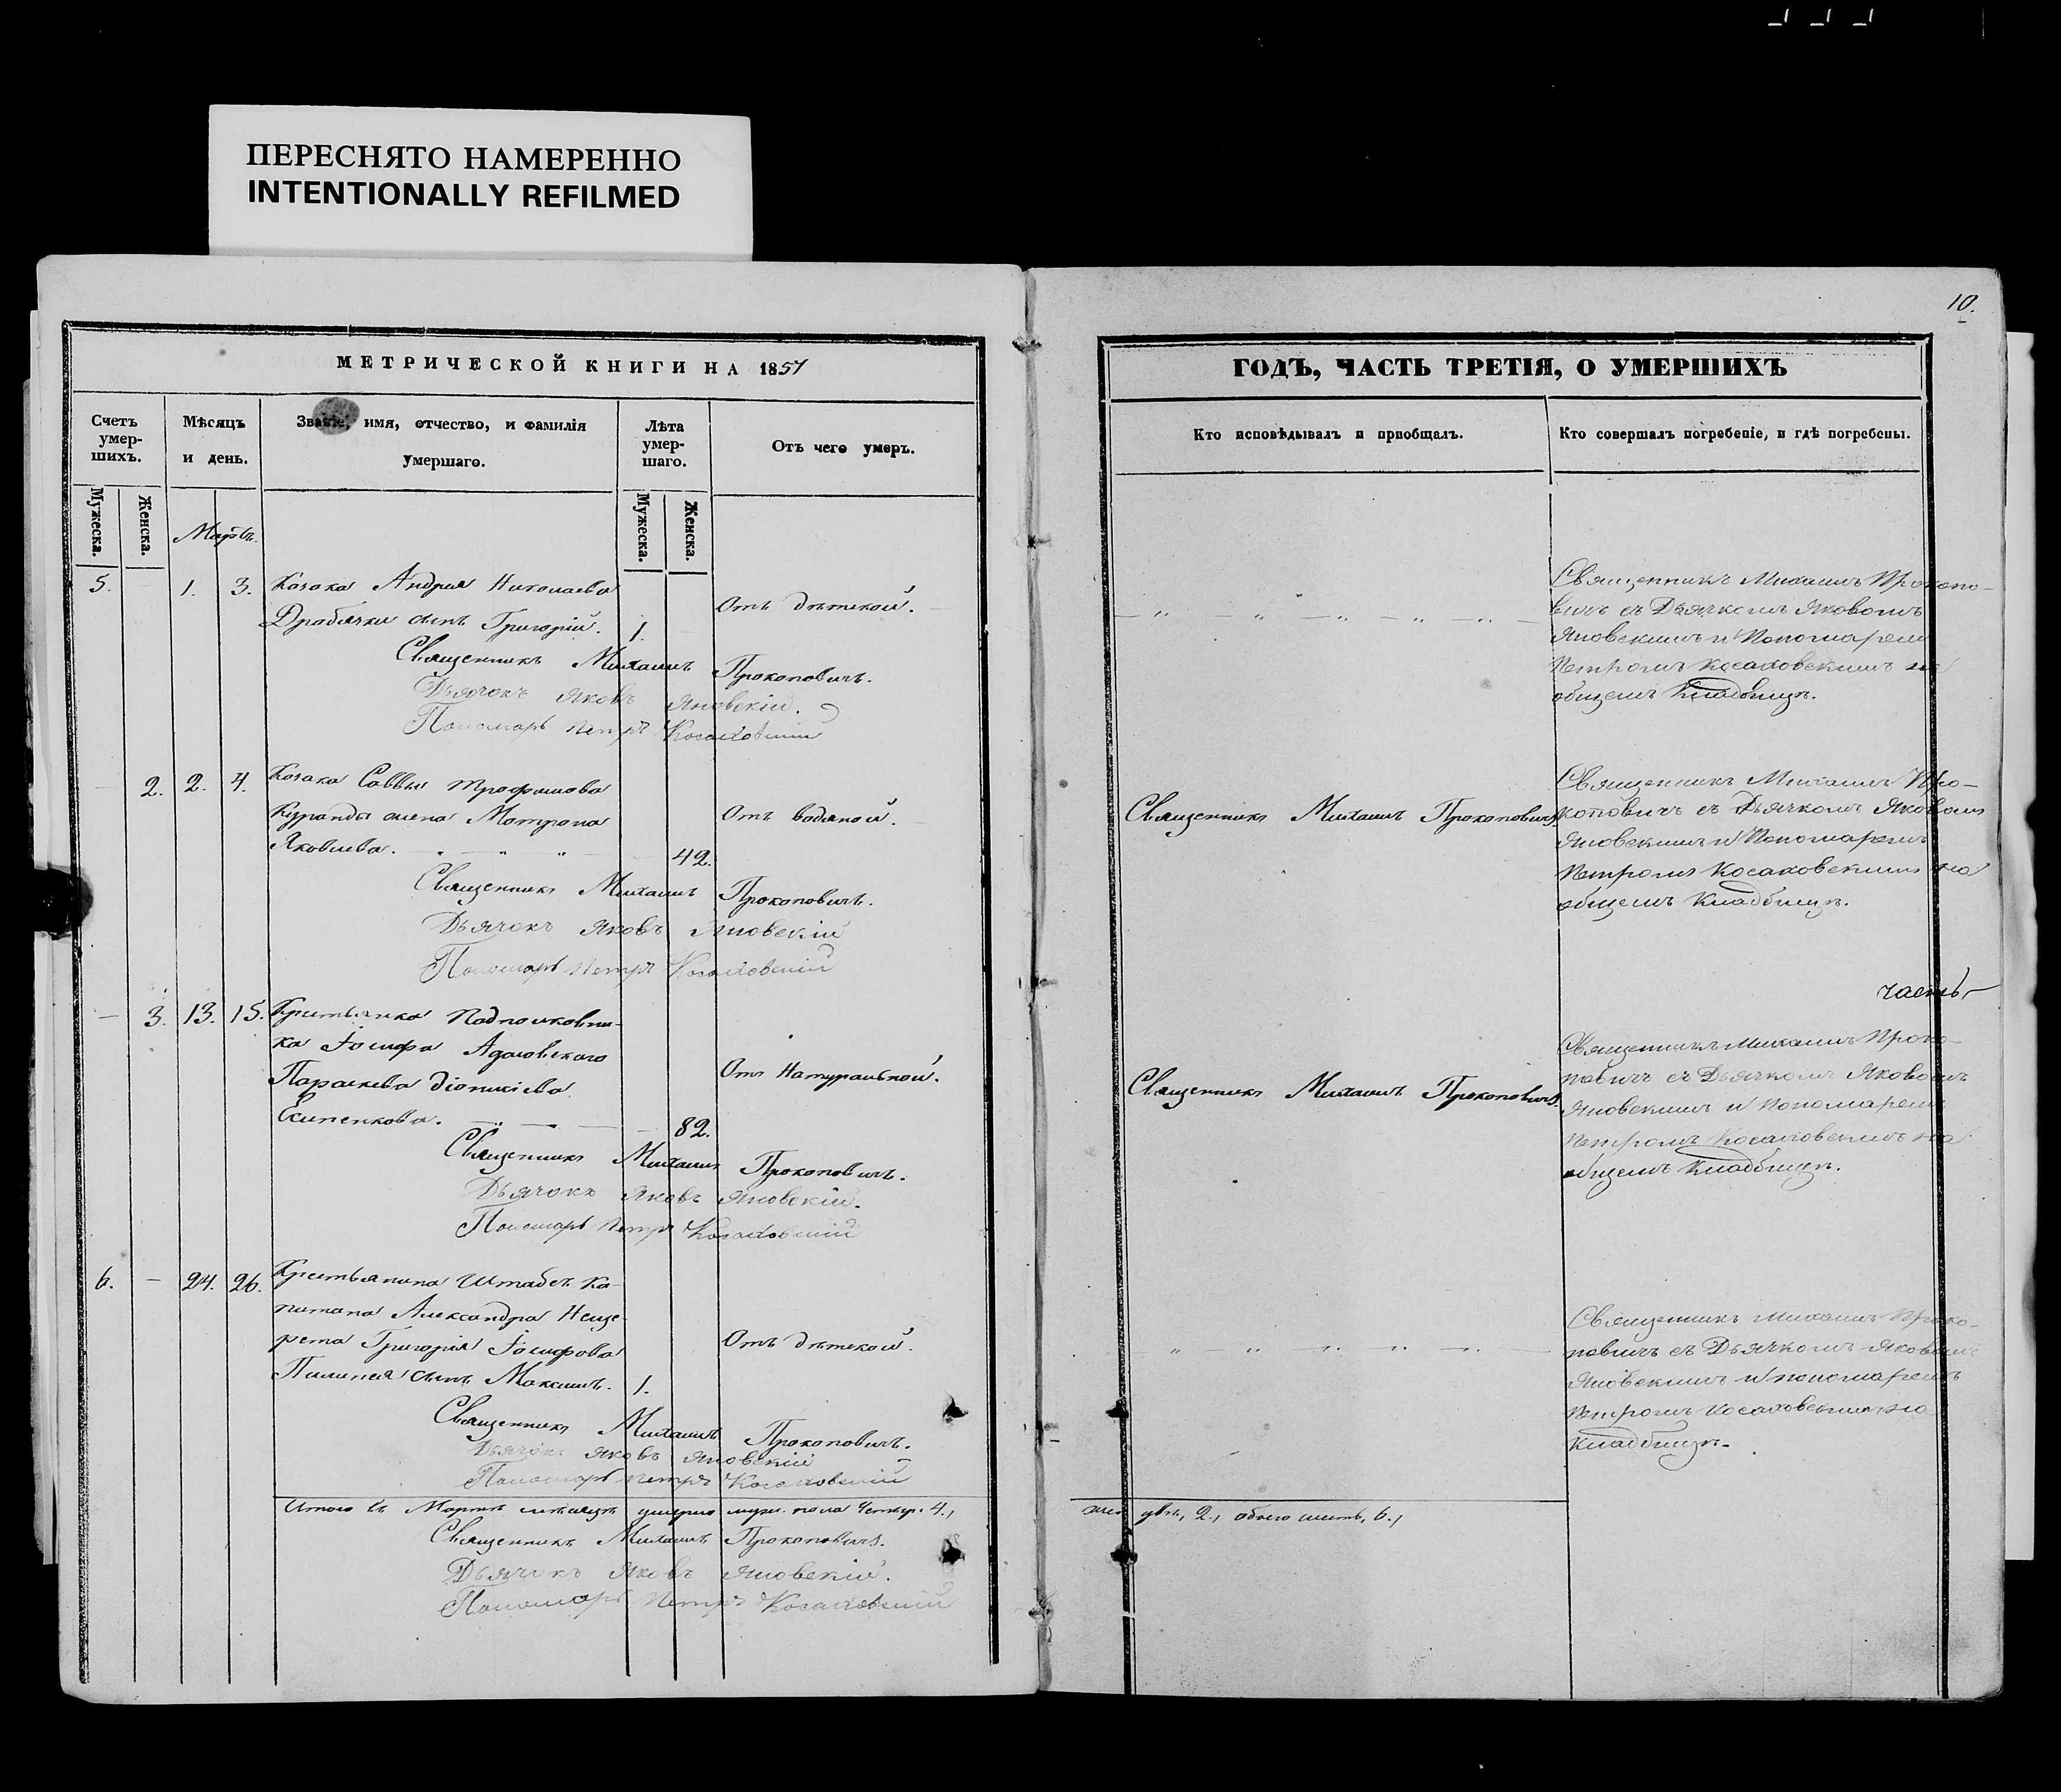 ПЕРЕСНЯТО НАМЕРЕННО
INTENTIONALLY REFILMED
10.
МЕТРИЧЕСКОЙ КНИГИ НА 1857
Счетъ умер-шихъ.
Мѣсяцъ и день.
Званіе, имя, отчество, и фамилія умершаго.
Лѣта умер-шаго.
Отъ чего умеръ.
Мужеска.
Женска.
Мужеска.
Женска.
Мартъ.
5. 1. 3. Козака Андрея Николаева
Драбячки сынъ Григорій. 1. Отъ дѣтской.
Священникъ Михаилъ Прокоповичъ.
Дьячокъ Яковъ Яновскій.
Пономарь Петръ Косаковскій
2. 2. 4. Козака Саввы Трофимова
Куранды жена Матрона Отъ водяной.
Яковлева. 42.
Священникъ Михаилъ Прокоповичъ.
Дьячокъ Яковъ Яновскій
Пономарь Петръ Косаковскій
3. 13. 15. Крестьянка Подполковни-
ка Іосифа
Параскева Діонисіева Отъ Натуральной.
82.
Священникъ Михаилъ Прокоповичъ.
Дьячокъ Яковъ Яновскій.
Пономарь Петръ Косаковскій
6. – 24. 26. Крестьянина Штабсъ Ка-
питана Александра Неще-
рета Григорія Іосифова Отъ дѣтской.
сынъ Максимъ. 1.
Священникъ Михаилъ Прокоповичъ.
Дьячокъ Яковъ Яновскій
Пономарь Петръ Косаковскій
Итого въ Мартѣ мѣсяцѣ умерло муж. пола четыр. 4.,
Священникъ Михаилъ Прокоповичъ.
Дьячокъ Яковъ Яновскій.
Пономарь Петръ Косаковскій
ГОДЪ, ЧАСТЬ ТРЕТІЯ, О УМЕРШИХЪ
Кто исповѣдывалъ и пріобщалъ.
Кто совершалъ погребеніе, и гдѣ погребены.
Священникъ Михаилъ Прокопо-
вичъ съ Дьячкомъ Яковомъ
Яновскимъ и Пономаремъ
Петромъ Косаковскимъ на
общемъ Кладбищѣ.
Священникъ Михаилъ Прокоповичъ
Священникъ Михаилъ Про-
коповичъ съ Дьячкомъ Яковомъ
Яновскимъ и Пономаремъ
Петромъ Косаковскимъ на
общемъ Кладбищѣ.
часть
Священникъ Михаилъ Прокоповичъ.
Священникъ Михаилъ Проко-
повичъ съ Дьячкомъ Яковомъ
Яновскимъ и Пономаремъ
Петромъ Косаковскимъ на
общемъ Кладбищѣ.
Священникъ Михаилъ Проко-
повичъ съ Дьячкомъ Яковомъ
Яновскимъ и пономаремъ
Петромъ Косаковскимъ на
Кладбищѣ.
жен. двѣ, 2., обоего шесть, 6.,